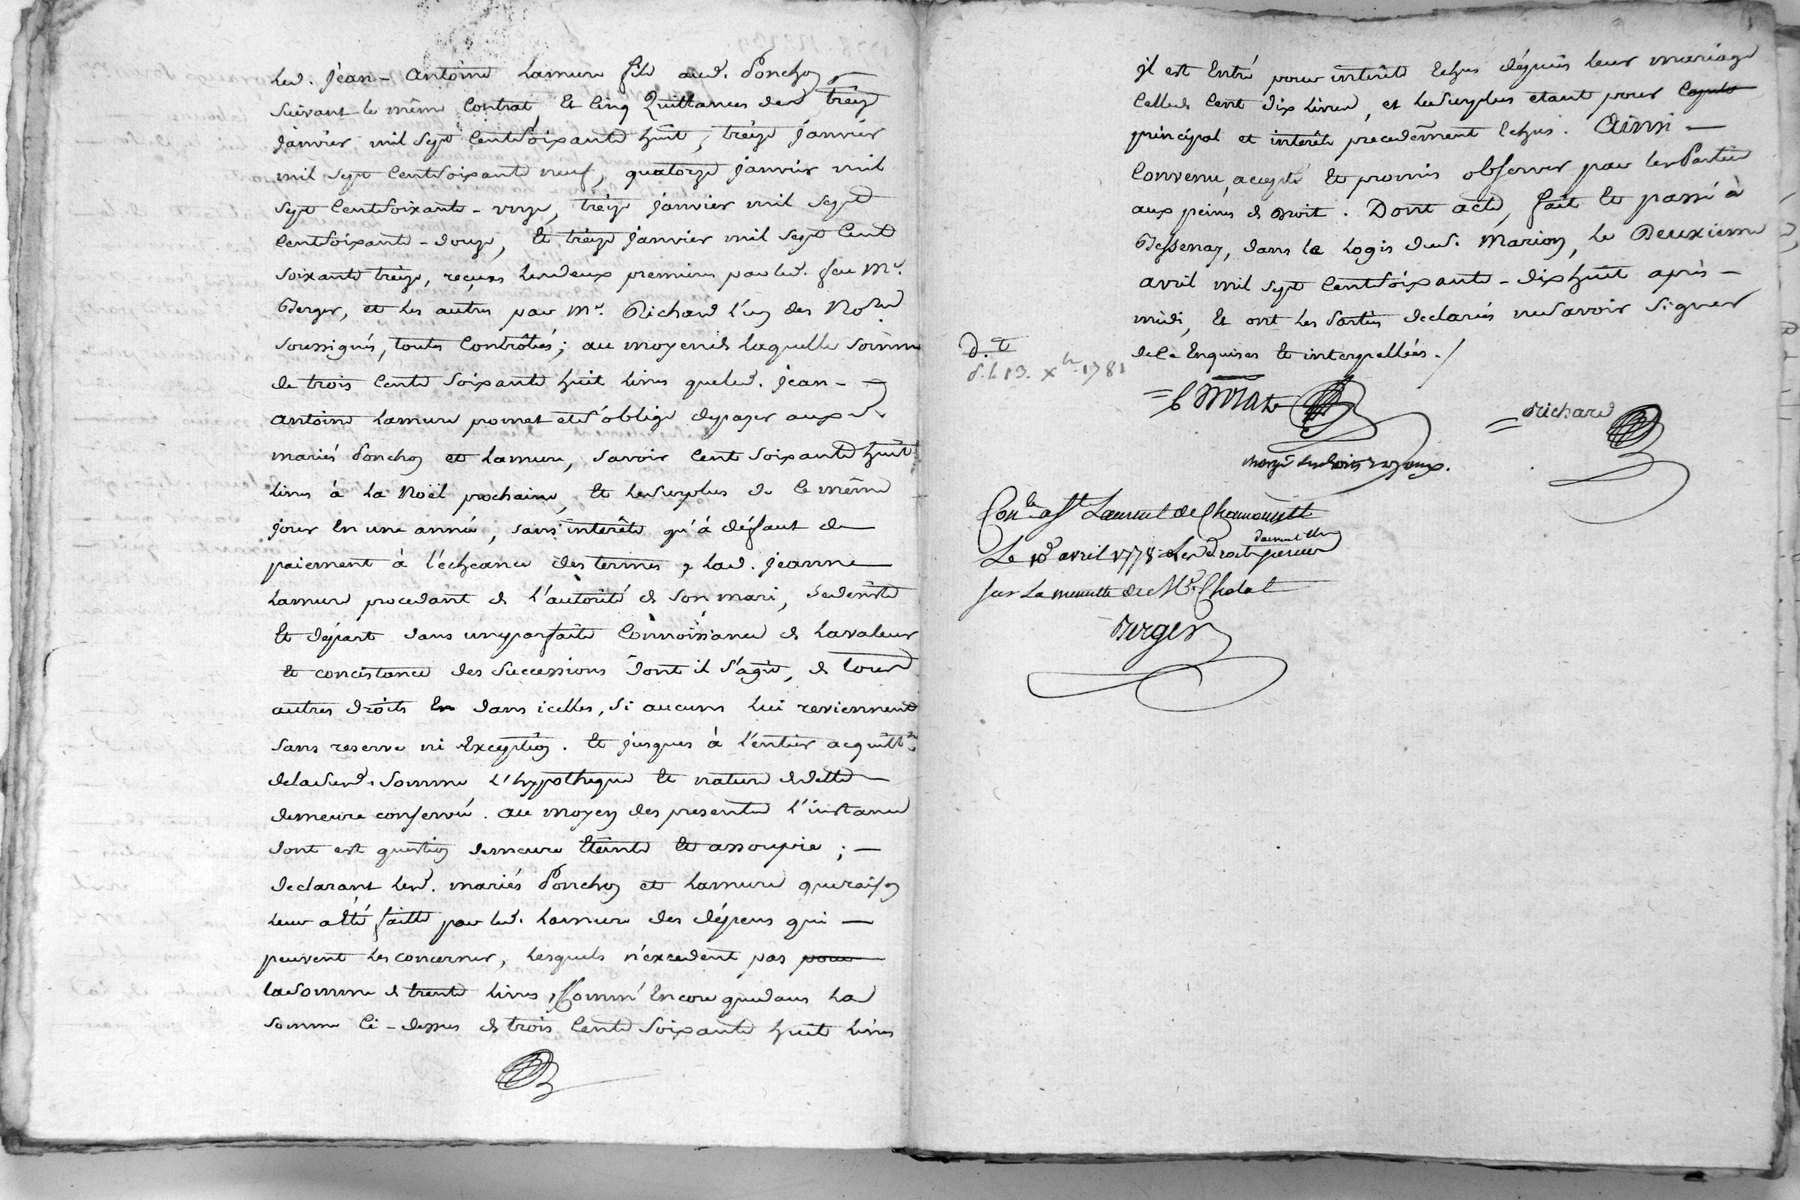 led. Jean - Antoine Lamure fils aud. Ponchon,
suivant le même Contrat, Et Cinq Quittances des treize
janvier mil sept Cent soixante huit, treize janvier
mil sept Cent soixante neuf, quatorze janvier mil
sept Cent soixante - onze, treize janvier mil sept
Cent soixante - douze, Et treize janvier mil sept Cent
soixante treize, reçues les deux premieres par led. feu Me.
Berger, et les autres par Me. Richard l'un des No.res
soussignés, toutes Contrôlées; au moyen de laquelle somme
de trois Cents soixante huit livres que led. Jean -
Antoine Lamure promet et s'oblige de payer auxd.
mariés Ponchon et Lamure, savoir Cent soixante huit
livres à la Noël prochaine, Et le surplus de Ce même
jour En une année, sans interêts qu'à défaut de
paiement à l'écheance des termes, lad. Jeanne
Lamure procedant de l'autorité de son mari, se demet
Et départ dans une parfaite Connoissance de la valeur
Et concistance des Successions dont il s'agit, de tous
autres droits En dans icelles, si aucuns lui reviennent
sans reserve ni Exception. Et jusques à l'entier acquittt.
de lasusd. somme l'hypotheque Et nature de dette
demeure conservée. au moyen des presentes l'instance
dont est question demeure Eteinte Et assoupie; -
declarant lesd. mariés Ponchon et Lamure que raison
leur a Eté faitte par led. Lamure des dépens qui -
peuvent les concerner, lesquels n'excedent pas pour
la somme de trente livres, Comm' Encore que dans la
somme Ci - dessus de trois Cents soixante huit livres
il est Entré pour interêts Echus dépuis leur mariage
Celle de Cent dix livres, et le surplus etant pour Capital
principal et interêts precedemment Echus. Ainsi -
Convenu, accepté Et promis observer par les Parties
aux peines de droit. Dont acte, fait Et passé à
Bessenay, dans le Logis dud. Marion, le Deuxieme
avril mil sept Cent soixante - dix huit après -
midi, Et ont les Parties declarées ne savoir signer
de Ce Enquises Et interpellées./
D. t
d. l. 13. Xbre 1781
Richard
Conlé. a St Laurent de Chamousset
Le 10 avril 1778
sur La minutte de Me. Cholat
Berger